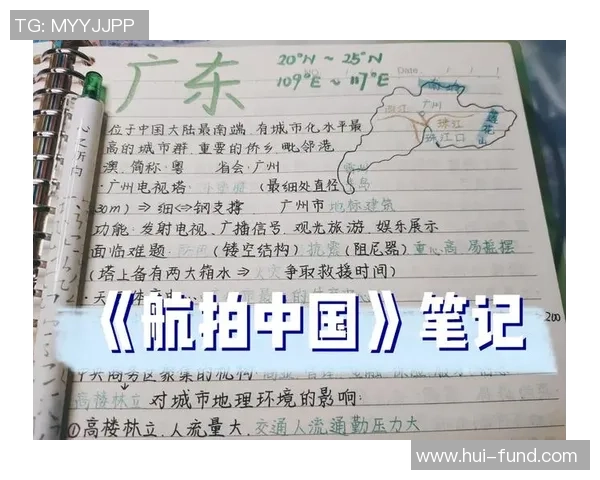 TG: MYYJJPP
广东
20°N ~ 25°N
109°E ~ 117°E
Date
南岭
西江
广州
珠江
珠江口
莲花山
位于中国大陆最南端,有城市化水平最
高的城市群,重要的侨乡,毗邻港
澳,简称:粤 省会:广州
·广州电视塔: (最细处直径
30m) ⇒ 细⇔钢支撑 广州市地标建筑
功能:发射电视、广播信号、观光旅游、娱乐展示
面临难题: (镂空结构) 抗震 (阻尼器) 重心高,易摇摆
(塔上备有两大箱水 ⇒ 争取救援时间)
·天
《航拍中国》笔记
200
中央商务区聚集的机构:
高楼林立 对城市地理环境的影响:
①高楼林立,人流量大,交通人流通勤压力大
www.hui-fund.com